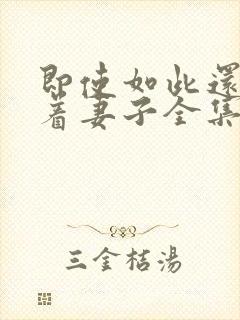 即使如此還
着妻子全集
三金桔湯